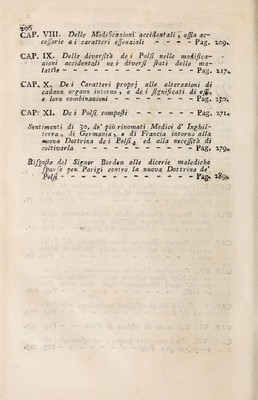 206
CAP. VIII. Delle Modificazioni accidentali, ossia ac-
cessorie a i caratteri essenziali - - - - Pag. 209.
CAP. IX. Delle diversità de i Polsi nelle modifica-
zioni accidentali ne i diversi stati delle ma-
lattie - - - - - - - - - - - Pag. 217.
CAP. X. De i Caratteri proprj alle alterazioni di
cadaun organo interno, e de i significati di essi,
e loro combinazioni - - - - - - Pag. 230.
CAP: XI. De i Polsi composti - - - - - Pag. 271.
Sentimenti di 30. de' più rinomati Medici d' Inghil-
terra, di Germania, e di Francia intorno alla
nuova Dottrina de i Polsi, ed alla necessità di
coltivarla - - - - - - - - - - Pag. 279.
Risposte del Signor Bordeu alle dicerie malediche
sparse per Parigi contro la nuova Dottrina de'
Polsi - - - - - - - - - - - Pag. 289.